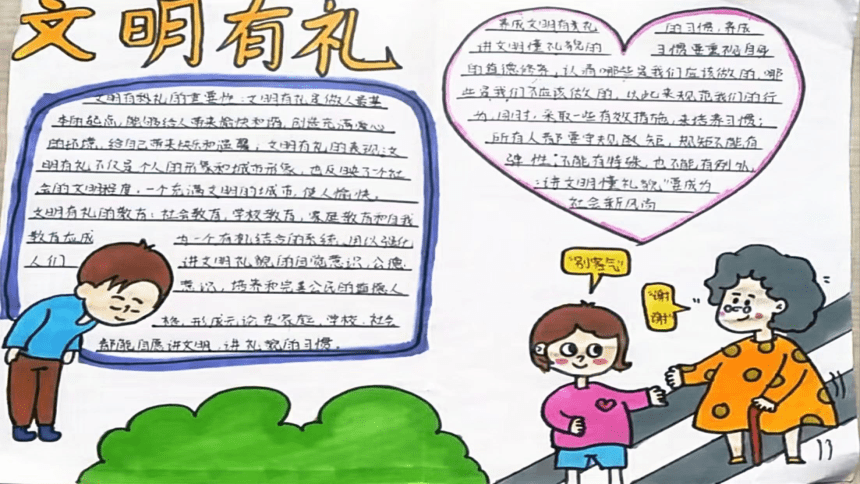 文明有礼
文明有教礼的重要性：文明有礼是做人最基
本的起点，能够给人带来愉快和谐，创造充满爱心
的环境，给自己带来快乐和温馨，文明有礼的表现：文
明有礼不仅是个人的形象和城市形象，也反映了个社
会的文明程度，一个充满文明的城市，使人愉快。
文明有礼的教育：社会教育，学校教育，家庭教育和自我
教育应成 为一个有机结合的系统，用以强化
人们 讲文明礼貌的自觉意识，公德
意识，培养和完善公民的道德人
格，形成无论在家庭，学校，社会
都能自愿讲文明，讲礼貌的习惯。
养成文明有素礼 的习惯，养成
讲文明懂礼貌的 习惯要重视自身
的道德修养，认清哪些是我们应该做的，哪
些是我们不应该做的，以此来规范我们的行
为，同时，采取一些有效措施，来培养习惯；
所有人都要守规敬矩，规矩不能有
弹性，不能有特殊，也不能有例外，
"讲文明懂礼貌"要成为
社会新风尚
"别客气"
"谢
谢"
13